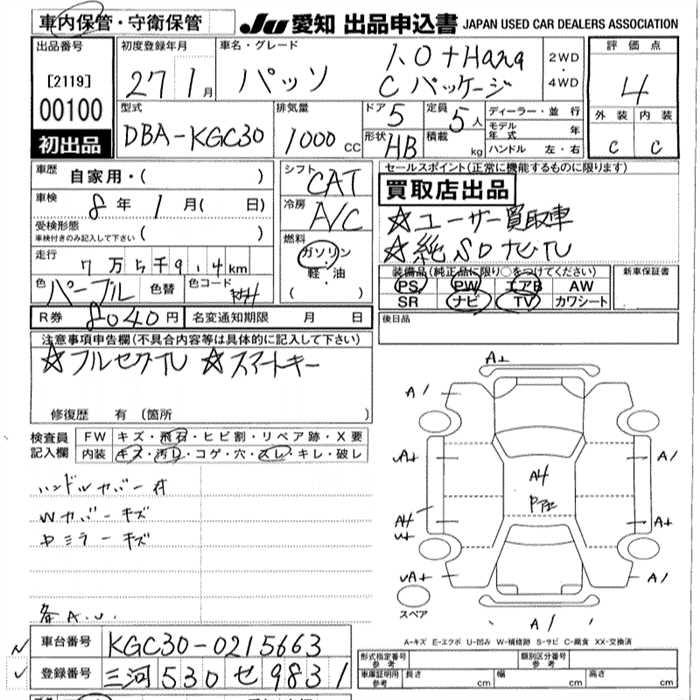 車内保管・守衛保管
JU 愛知 出品申込書 JAPAN USED CAR DEALERS ASSOCIATION
出品番号
[2119]
00100
初出品
初度登録年月
27 1月
車名・グレード
パッソ
1.0 +Hana
Cパッケージ
2WD
・
4WD
評価点
4
外装 内装
C C
型式
DBA-KGC30
排気量
1000 CC
ドア 5
形状 HB
定員 5人
積載 kg
ディーラー・並行
モデル年式 年
ハンドル 左・右
車歴 自家用・( )
車検 8年 1月( 日)
受検形態
車検付きのみ記入して下さい ( )
走行 7万5千9.4km
色 パープル 色替 色コード
シフト CAT
冷房 A/C
燃料
ガソリン
・
軽・油
( )
セールスポイント(正常に機能するものに限ります)
買取店出品
☆ユーザー買取車
☆純SDナビTV
装備品(純正品に限り○をつけてください)
PS PW エアB AW
SR ナビ TV カワシート
新車保証書
後日品
R券 8040円 名変通知期限 月 日
注意事項申告欄(不具合内容等は具体的に記入して下さい)
☆フルセグTV ☆スマートキー
修復歴 有 (箇所 )
検査員記入欄
FW キズ・飛石・ヒビ割・リペア跡・X要
内装 キズ・汚レ・コゲ・穴・スレ・キレ・破レ
ハンドルカバー付
Wカバーキズ
ドミラーキズ
各A.U.
A+
A/
A/
A+
A/
A4
A4
A+
A/
A/
スペア
A-キズ E-エクボ U-凹み W-補修跡 S-サビ C-腐食 XX-交換済
車台番号 KGC30-0215663
登録番号 三河530せ9831
形式指定番号
参考
類別区分番号
参考
車庫証明用
参考
長さ cm 幅 cm 高さ cm